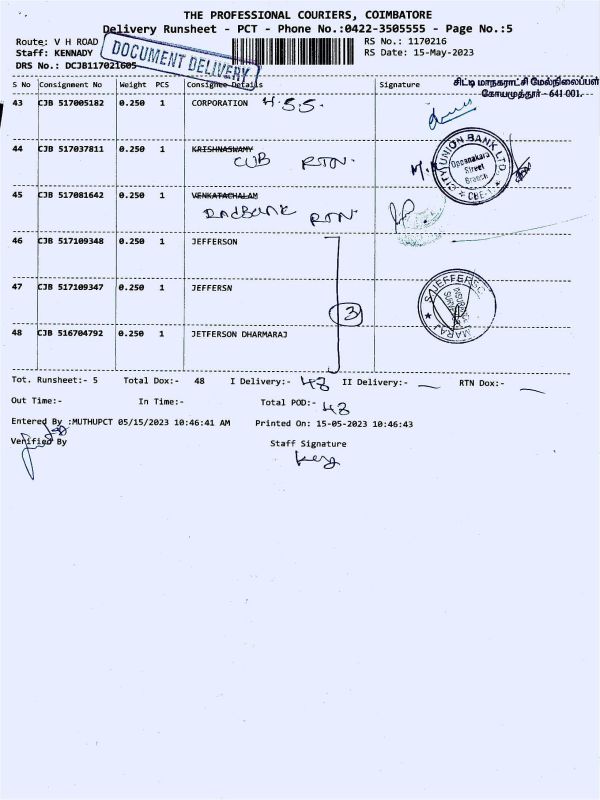 THE PROFESSIONAL COURIERS, COIMBATORE
Delivery Runsheet - PCT - Phone No.:0422-3505555 - Page No.:5
Route: V H ROAD
RS No.: 1170216
Staff: KENNADY
RS Date: 15-May-2023
DRS No.: DCJB117021605
DOCUMENT DELIVERY
S No Consignment No Weight PCS Consignee Details Signature
சிட்டி மாநகராட்சி மேல்நிலைப்பள்
கோயமுத்தூர் - 641 001.
43 CJB 517005182 0.250 1 CORPORATION H.S.S.
44 CJB 517037811 0.250 1 KRISHNASWAMY
CUB RTN.
CITY UNION BANK LTD.
Oppanakara
Street
Branch
CBE-1
45 CJB 517081642 0.250 1 VENKATACHALAM
RTN
46 CJB 517109348 0.250 1 JEFFERSON
47 CJB 517109347 0.250 1 JEFFERSN
3
48 CJB 516704792 0.250 1 JETFERSON DHARMARAJ
Tot. Runsheet:- 5 Total Dox:- 48 I Delivery:- 48 II Delivery:- — RTN Dox:- —
Out Time:- In Time:- Total POD:- 48
Entered By :MUTHUPCT 05/15/2023 10:46:41 AM Printed On: 15-05-2023 10:46:43
Verified By Staff Signature